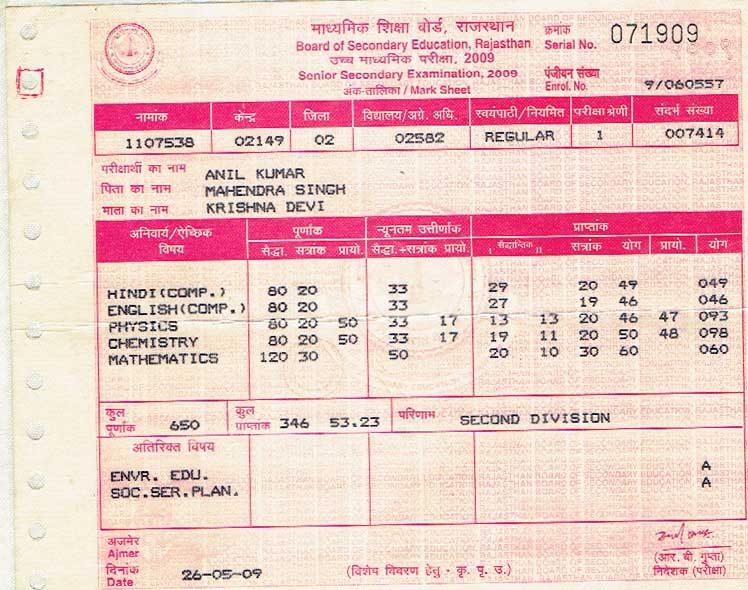 माध्यमिक शिक्षा बोर्ड, राजस्थान
Board of Secondary Education, Rajasthan
उच्च माध्यमिक परीक्षा, 2009
Senior Secondary Examination, 2009
अंक-तालिका / Mark Sheet
क्रमांक
Serial No. 071909
पंजीयन संख्या
Enrol. No. 9/060557
नामांक केन्द्र जिला विद्यालय/अग्रे. अधि. स्वयंपाठी/नियमित परीक्षा श्रेणी संदर्भ संख्या
1107538 02149 02 02582 REGULAR 1 007414
परीक्षार्थी का नाम ANIL KUMAR
पिता का नाम MAHENDRA SINGH
माता का नाम KRISHNA DEVI
अनिवार्य/ऐच्छिक विषय पूर्णांक न्यूनतम उत्तीर्णांक प्राप्तांक
सैद्धा. सत्रांक प्रायो. सैद्धा.+सत्रांक प्रायो. I सैद्धान्तिक II सत्रांक योग प्रायो. योग
HINDI(COMP.) 80 20 33 29 20 49 049
ENGLISH(COMP.) 80 20 33 27 19 46 046
PHYSICS 80 20 50 33 17 13 13 20 46 47 093
CHEMISTRY 80 20 50 33 17 19 11 20 50 48 098
MATHEMATICS 120 30 50 20 10 30 60 060
कुल पूर्णांक 650 कुल प्राप्तांक 346 53.23 परिणाम SECOND DIVISION
अतिरिक्त विषय
ENVR. EDU. A
SOC.SER.PLAN. A
अजमेर
Ajmer
दिनांक
Date 26-05-09
(विशेष विवरण हेतु - कृ. पृ. उ.)
(आर. बी. गुप्ता)
निदेशक (परीक्षा)